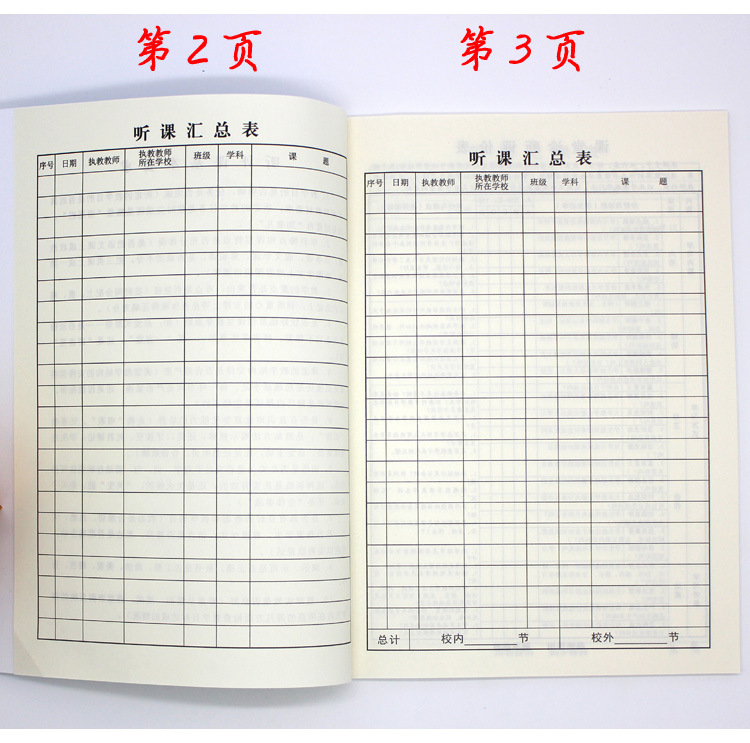 第2页
第3页
听课汇总表
序号 日期 执教教师 执教教师所在学校 班级 学科 课 题
听课汇总表
序号 日期 执教教师 执教教师所在学校 班级 学科 课 题
总计 校内______节 校外______节